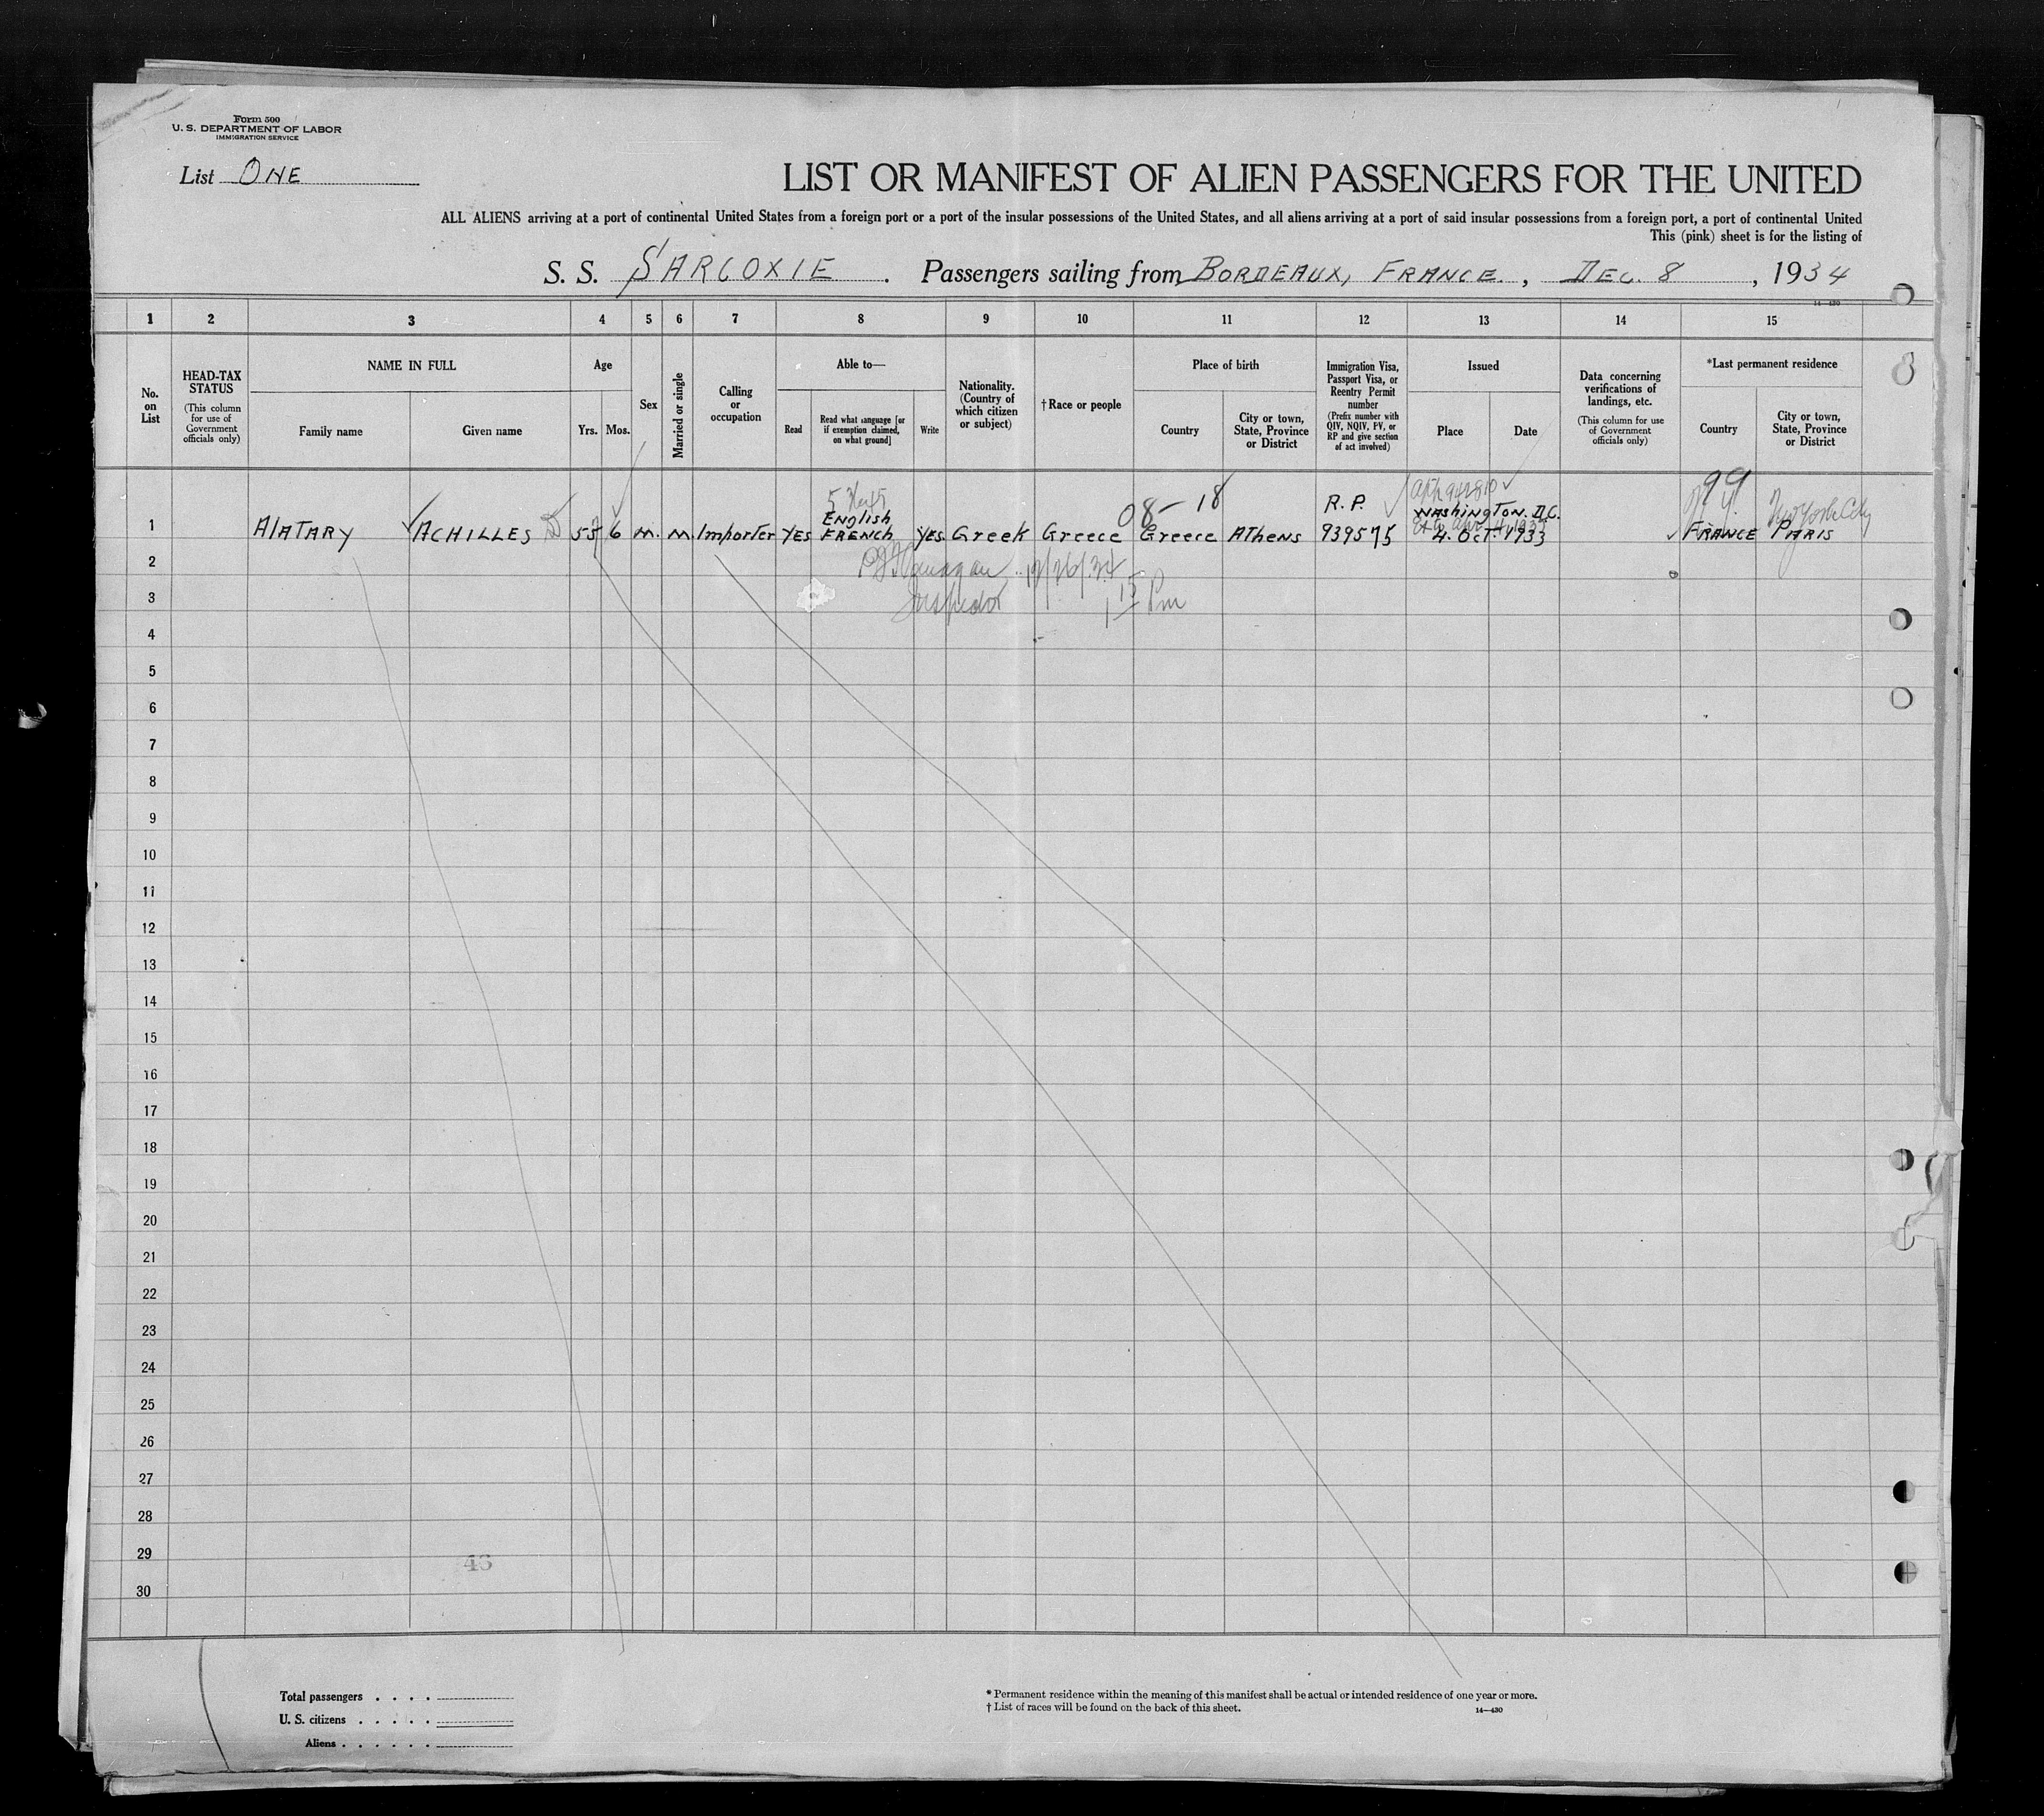 Form 500
U. S. DEPARTMENT OF LABOR
IMMIGRATION SERVICE
List ONE
LIST OR MANIFEST OF ALIEN PASSENGERS FOR THE UNITED
ALL ALIENS arriving at a port of continental United States from a foreign port or a port of the insular possessions of the United States, and all aliens arriving at a port of said insular possessions from a foreign port, a port of continental United
This (pink) sheet is for the listing of
S. S. SARCOXIE. Passengers sailing from BORDEAUX, FRANCE., DEC. 8, 1934
14—430
1 2 3 4 5 6 7 8 9 10 11 12 13 14 15
No. on List
HEAD-TAX STATUS
(This column for use of Government officials only)
NAME IN FULL
Family name
Given name
Age
Yrs.
Mos.
Sex
Married or single
Calling or occupation
Able to—
Read
Read what language [or if exemption claimed, on what ground]
Write
Nationality. (Country of which citizen or subject)
†Race or people
Place of birth
Country
City or town, State, Province or District
Immigration Visa, Passport Visa, or Reentry Permit number
(Prefix number with QIV, NQIV, PV, or RP and give section of act involved)
Issued
Place
Date
Data concerning verifications of landings, etc.
(This column for use of Government officials only)
*Last permanent residence
Country
City or town, State, Province or District
08-18
99
N.Y. New York City
1 ALATARY ACHILLES 55 6 M. M Importer YES English FRENCH YES Greek Greece Greece Athens R.P. 939575 WASHINGTON. D.C. 4. Oct. 1933 FRANCE PARIS
12/26/34
Inspector 1 15 Pm
2
3
4
5
6
7
8
9
10
11
12
13
14
15
16
17
18
19
20
21
22
23
24
25
26
27
28
29
46
30
Total passengers . . . .
U. S. citizens . . . . .
Aliens . . . . . .
* Permanent residence within the meaning of this manifest shall be actual or intended residence of one year or more.
† List of races will be found on the back of this sheet.
14—430